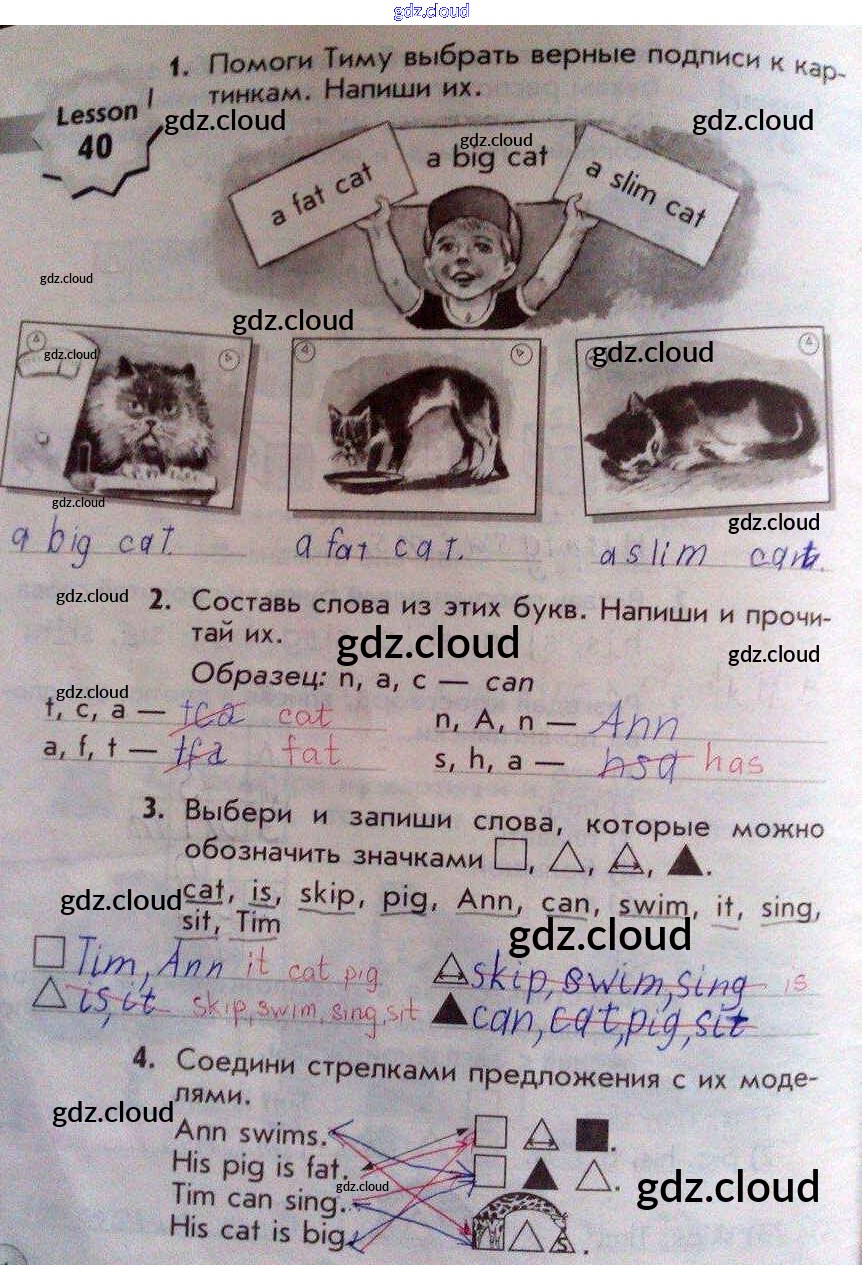 gdz.cloud
1. Помоги Тиму выбрать верные подписи к кар-
тинкам. Напиши их.
Lesson
40
gdz.cloud gdz.cloud
gdz.cloud
a fat cat a big cat a slim cat
gdz.cloud
gdz.cloud
gdz.cloud gdz.cloud
gdz.cloud
gdz.cloud
a big cat. a fat cat. a slim
gdz.cloud 2. Составь слова из этих букв. Напиши и прочи-
тай их.
gdz.cloud gdz.cloud
Образец: n, a, c — can
gdz.cloud
t, c, a — tca cat n, A, n — Ann
a, f, t — tfa fat s, h, a — hsa has
3. Выбери и запиши слова, которые можно
обозначить значками □, △, △, ▲.
gdz.cloud
cat, is, skip, pig, Ann, can, swim, it, sing,
sit, Tim
gdz.cloud
Tim, Ann it cat pig skip, swim, sing is
is, it skip, swim, sing, sit can, cat, pig, sit
4. Соедини стрелками предложения с их моде-
лями.
gdz.cloud
Ann swims.
His pig is fat.
Tim can sing.
gdz.cloud gdz.cloud
His cat is big.
s